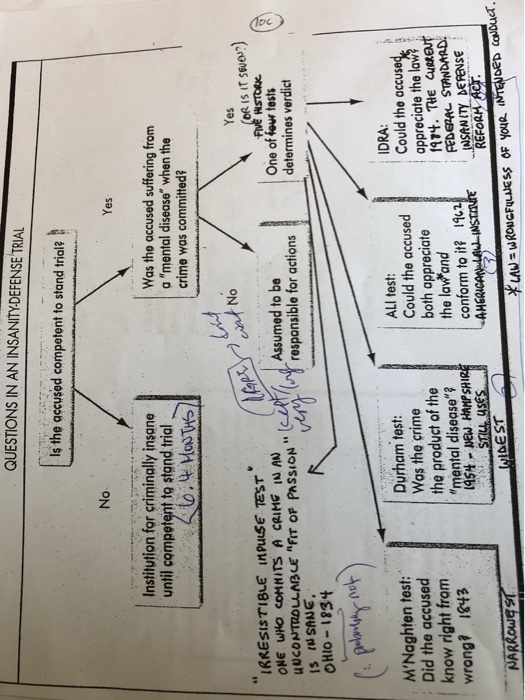 QUESTIONS IN AN INSANITY-DEFENSE TRIAL
10C
Is the accused competent to stand trial?
No
Yes
Institution for criminally insane
until competent to stand trial
Was the accused suffering from
a "mental disease" when the
crime was committed?
No
Yes
(OR IS IT SEVEN?)
FIVE HISTORIC
One of four tests
determines verdict
Assumed to be
responsible for actions
"IRRESISTIBLE IMPULSE TEST"
ONE WHO COMMITS A CRIME IN AN
UNCONTROLLABLE "FIT OF PASSION"
IS INSANE.
OHIO - 1834
M'Naghten test:
Did the accused
know right from
wrong? 1843
Durham test:
Was the crime
the product of the
"mental disease"?
1954 - NEW HAMPSHIRE
STILL USES
ALI test:
Could the accused
both appreciate
the law* and
conform to it? 1962
AMERICAN LAW INSTITUTE
(3)
IDRA:
Could the accused
appreciate the law?*
1984. THE CURRENT
FEDERAL STANDARD.
INSANITY DEFENSE
REFORM ACT.
NARROWEST
WIDEST
* LAW = WRONGFULNESS OF YOUR INTENDED CONDUCT.